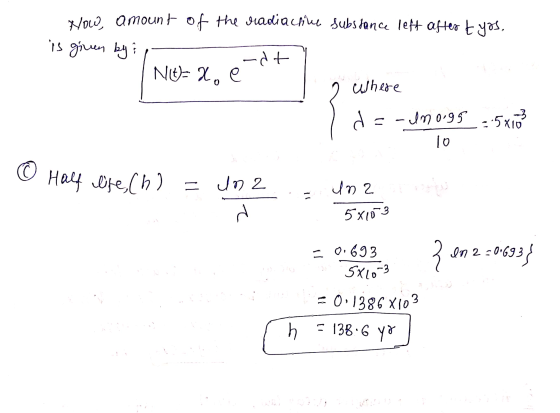 Now, amount of the radiactive substance left after t yrs.
is given by:
N(t) = x₀ e^{-λt}
where
λ = -ln 0.95 / 10 = .5x10^{-3}
Ⓒ Half life,(h) = ln 2 / λ = ln 2 / 5x10^{-3}
= 0.693 / 5x10^{-3} { ln 2 = 0.693 }
= 0.1386 x 10^3
h = 138.6 yr